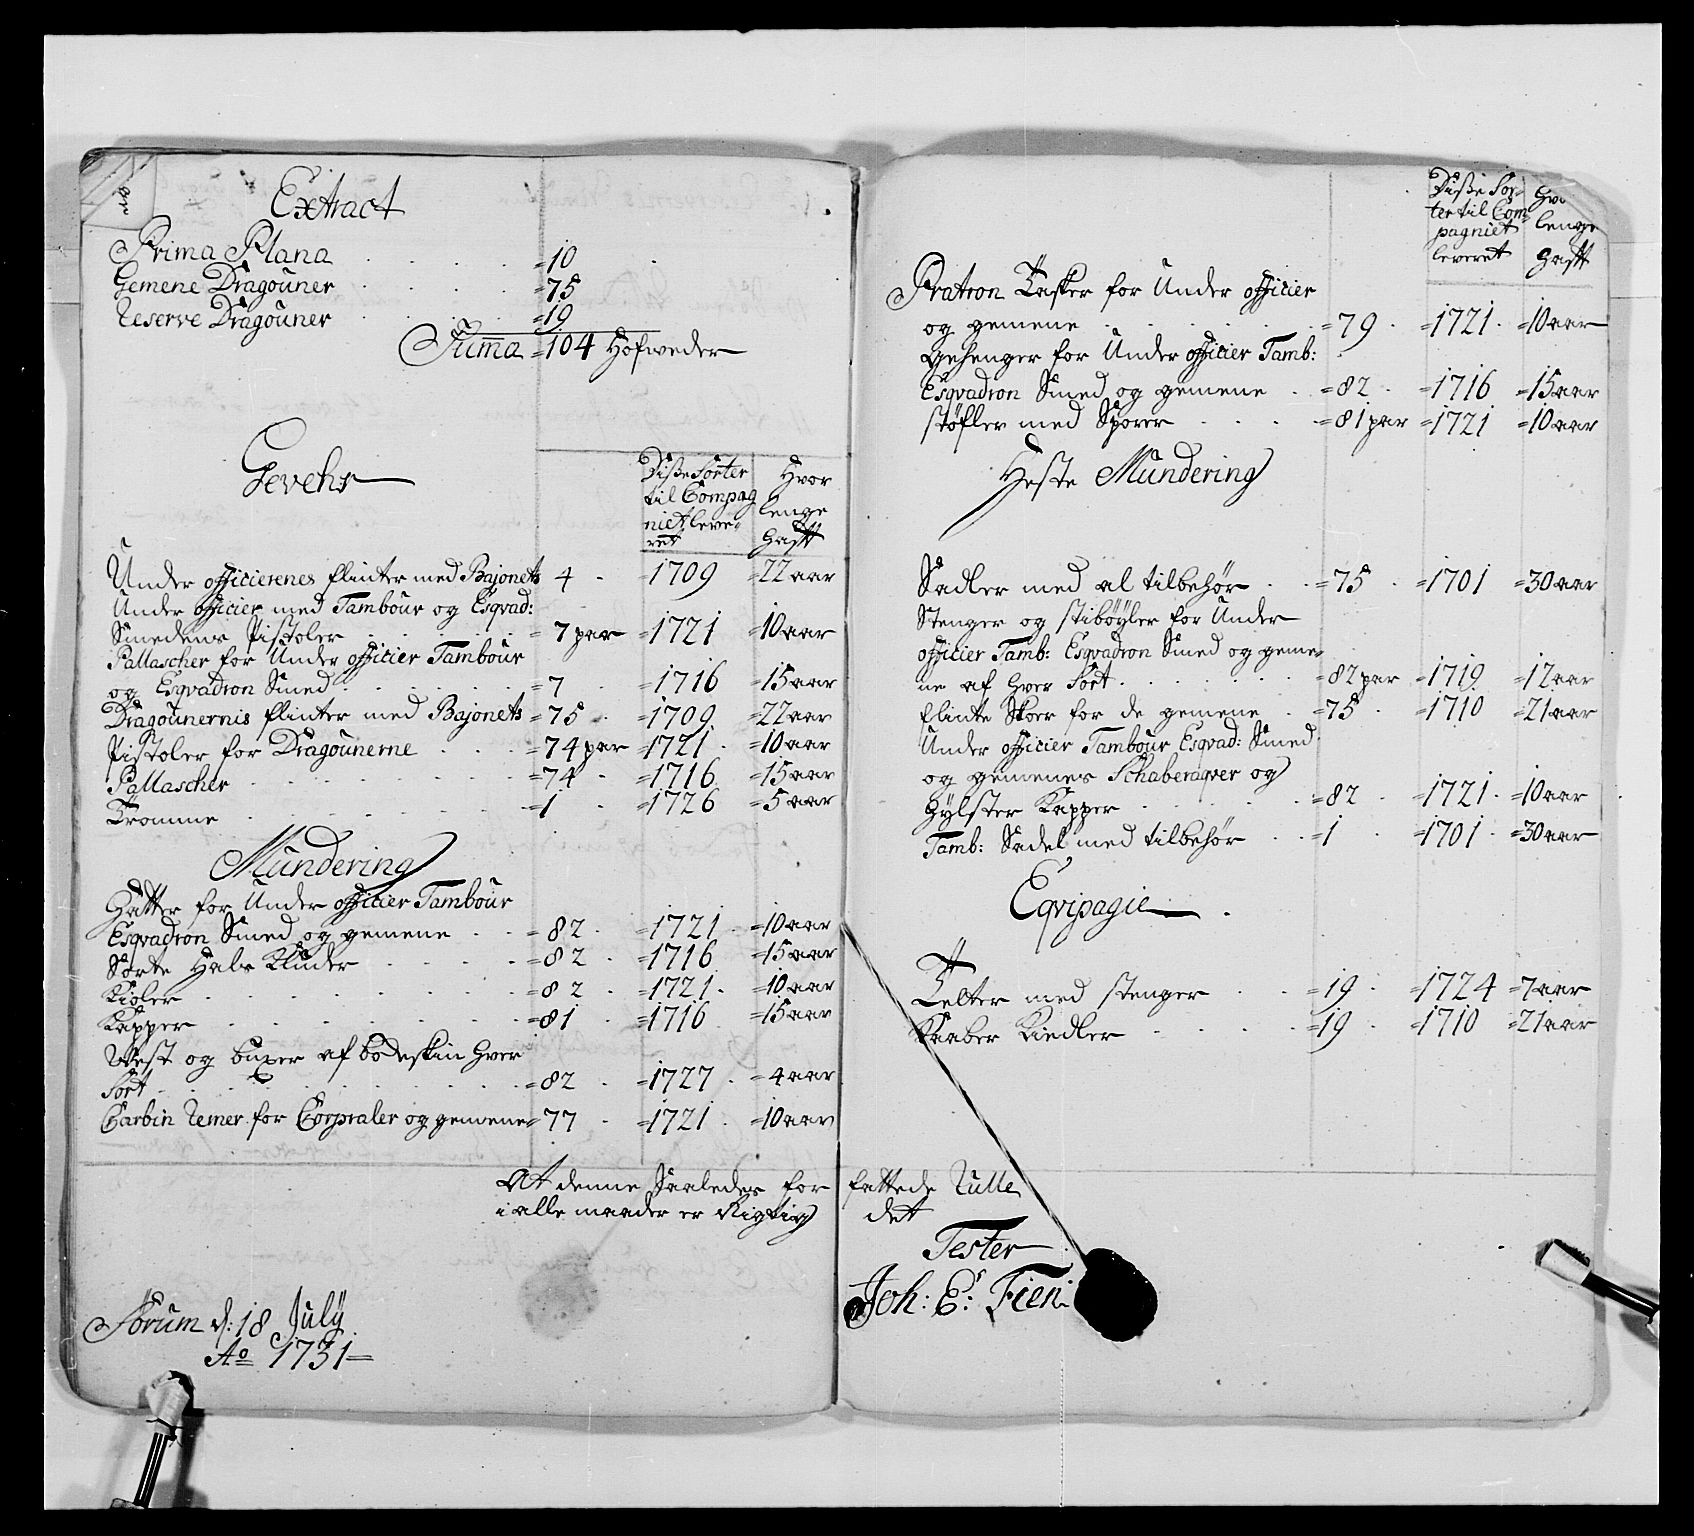 Extract
Prima Plana . . . . =10
Gemene Dragouner . . . =75
Reserve Dragouner . . . =19
Suma =104 Hofweder
Gevehr
Diße Sorter til Compagniet leveret
Hvor lenge Hafft
Under officierenes flinter med Bajonets 4 . =1709 =22 aar
Under officier med Tambour og Esqvad:
Smedens Pistoler . . . . =7 par =1721 =10 aar
Pallascher for Under officier Tambour
og Esqvadron Smed . . . . =7 =1716 =15 aar
Dragounernis flinter med Bajonets =75 . =1709 =22 aar
Pistoler for Dragounerne . . . =74 par =1721 . =10 aar
Pallascher . . . . . =74 . =1716 =15 aar
Tromme . . . . . =1 . =1726 =5 aar
Mundering
Hatter for Under officier Tambour
Esqvadron Smed og gemene . . =82 . =1721 . =10 aar
Sorte Hals Kluder . . . . =82 . =1716 =15 aar
Kioler . . . . . =82 . =1721 . =10 aar
Kapper . . . . . =81 . =1716 =15 aar
West og buxer af bodeskin hver
Sort . . . . . =82 . =1727 . =4 aar
Carbin Remer for Corpraler og gemene =77 . =1721 . =10 aar
At denne Saaledes for fattede Rulle
i alle maader er Rigtig det
Tester
Joh: E: Fien
Sorum d: 18 July
Ao 1731
Diße Sorter til Compagniet leveret
lenge Hafft
Pratron Tasker for Under officier
og gemene . . . . =79 . =1721 . =10 aar
Gehenger for Under officier Tamb:
Esqvadron Smed og gemene . =82 . =1716 =15 aar
støfler med Sporer . . . . =81 par =1721 =10 aar
Heste Mundering
Sadler med al tilbehör . . =75 . =1701 =30 aar
Stenger og stibøyler for Under
officier Tamb: Esqvadron Smed og geme=
ne af hver Sort . . . . =82 par =1719 =12 aar
flinte Skoer for de gemene . =75 . =1710 =21 aar
Under officier Tambour Esqvad: Smed
og gemenes Schaberaqver og
Hylster Kapper . . . . =82 . =1721 . =10 aar
Tamb: Sadel med tilbehör . . =1 . =1701 . =30 aar
Eqvipagie
Telter med stenger . . =19 . =1724 =7 aar
Kaaber Kiedler . . . . =19 . =1710 =21 aar